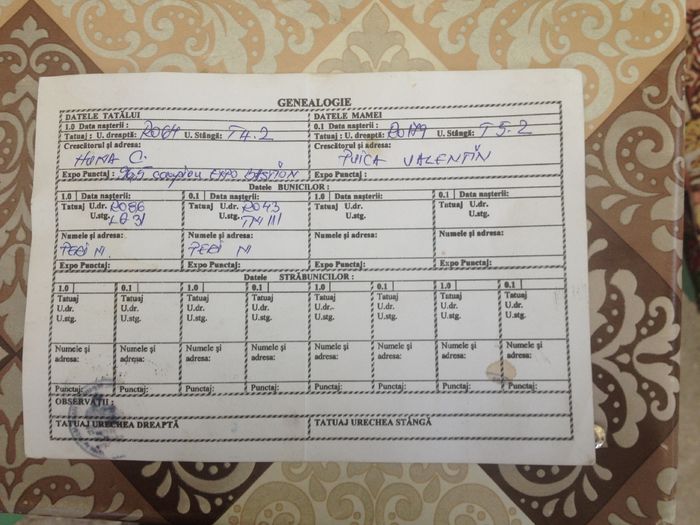 GENEALOGIE
DATELE TATĂLUI DATELE MAMEI
1.0 Data nașterii : 0.1 Data nașterii :
Tatuaj : U. dreaptă: RO64 U. Stângă: T4.2 Tatuaj : U. dreaptă: U. Stângă: T5.2
Crescătorul și adresa: Crescătorul și adresa:
HOMA C. PUICA VALENTIN
Expo Punctaj : EXPO Expo Punctaj :
Datele BUNICILOR :
1.0 Data nașterii: 0.1 Data nașterii: 1.0 Data nașterii: 0.1 Data nașterii:
Tatuaj U.dr. RO86 Tatuaj U.dr. RO43 Tatuaj U.dr. Tatuaj U.dr.
U.stg. U.stg. U.stg. U.stg.
Numele și adresa: Numele și adresa: Numele și adresa: Numele și adresa:
PEBI M. PEBI M
Expo Punctaj: Expo Punctaj: Expo Punctaj: Expo Punctaj:
Datele STRĂBUNICILOR :
1.0 0.1 1.0 0.1 1.0 0.1 1.0 0.1
Tatuaj Tatuaj Tatuaj Tatuaj Tatuaj Tatuaj Tatuaj Tatuaj
U.dr. U.dr. U.dr. U.dr. U.dr. U.dr. U.dr. U.dr.
U.stg. U.stg. U.stg. U.stg. U.stg. U.stg. U.stg. U.stg.
Numele și Numele și Numele și Numele și Numele și Numele și Numele și Numele și
adresa: adresa: adresa: adresa: adresa: adresa: adresa: adresa:
Punctaj: Punctaj: Punctaj: Punctaj: Punctaj: Punctaj: Punctaj: Punctaj:
OBSERVAȚII :
TATUAJ URECHEA DREAPTĂ TATUAJ URECHEA STÂNGĂ